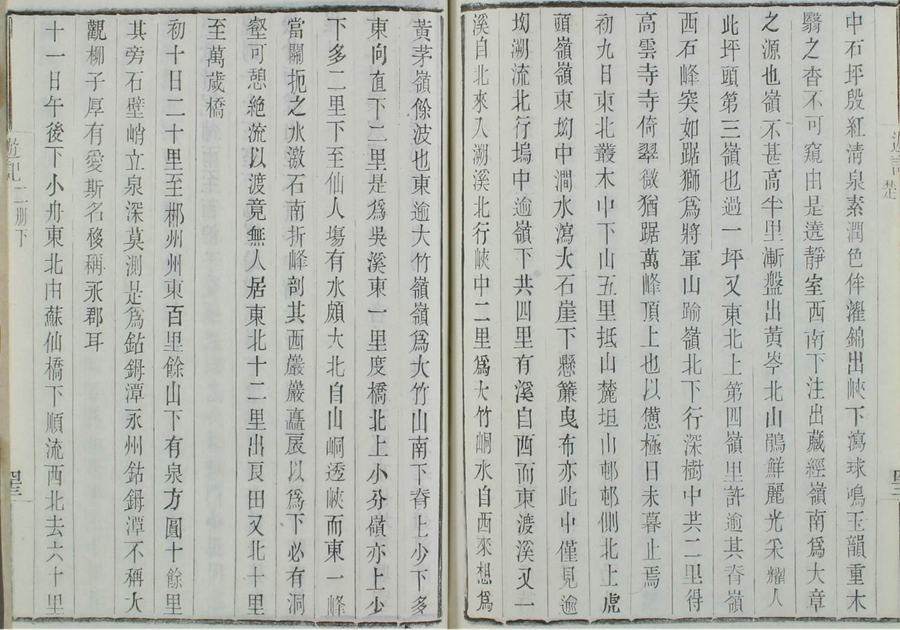 中石坪殷紅清泉素潤色侔濯錦出峽下瀉球鳴玉韻重木
翳之杳不可窺由是遶靜室西南下注出藏經嶺南爲大章
之源也嶺不甚高半里漸盤出黃岑北山鵑鮮麗光采耀人
此坪頭第三嶺也過一坪又東北上第四嶺里許逾其脊嶺
西石峰突如踞獅爲將軍山踰嶺北下行深樹中共二里得
高雲寺寺倚翠微猶踞萬峰頂上也以憊極日未暮止焉
初九日東北叢木中下山五里抵山麓坦山邨邨側北上虎
頭嶺嶺東坳中澗水瀉大石崖下懸簾曳布亦此中僅見逾
坳溯流北行塢中逾嶺下共四里有溪自西而東渡溪又一
溪自北來入溯溪北行峽中二里爲大竹峒水自西來想爲
黃茅嶺餘波也東逾大竹嶺嶺爲大竹山南下脊上少下多
東向直下二里是爲吳溪東一里度橋北上小分嶺亦上少
下多二里下至仙人塲有水頗大北自山峒透峽而東一峰
當關扼之水激石南折峰剖其西巖巖矗㞡以爲下必有洞
壑可憩絶流以渡竟無人居東北十二里出良田又北十里
至萬歲橋
初十日二十里至郴州州東百里餘山下有泉方圓十餘里
其旁石壁峭立泉深莫測是爲鈷鉧潭永州鈷鉧潭不稱大
觀柳子厚有愛斯名移稱永郡耳
十一日午後下小舟東北由蘇仙橋下順流西北去六十里
遊記二册下